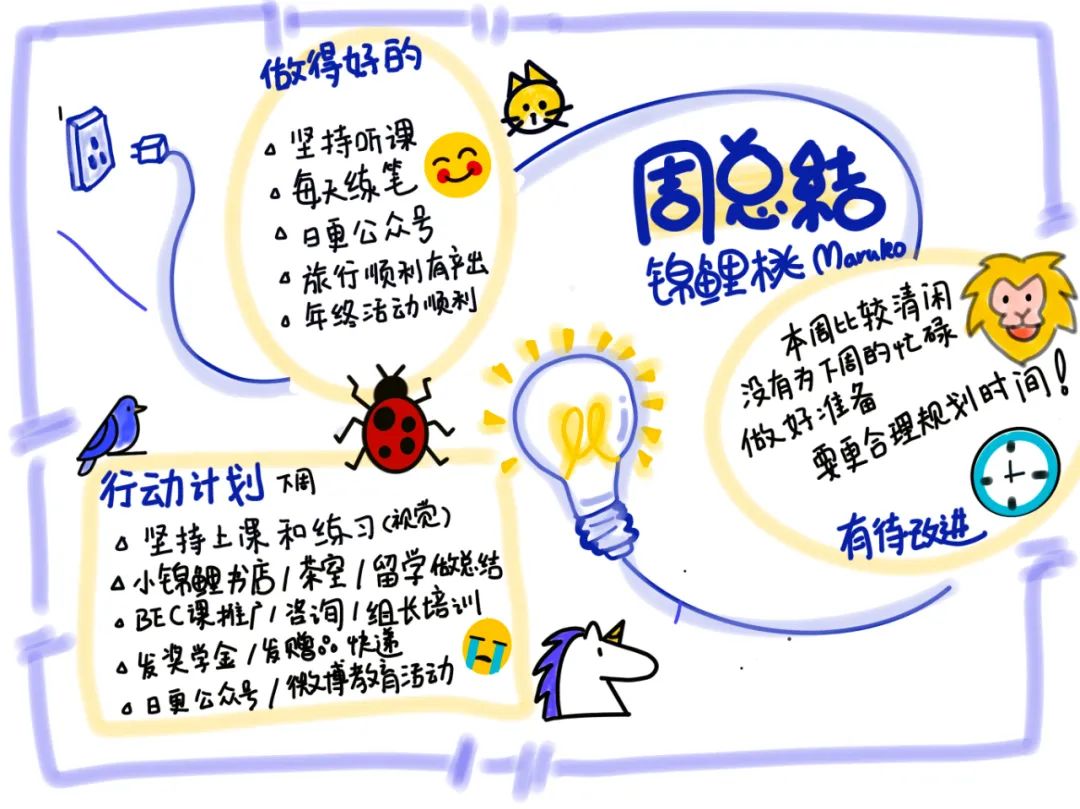 周总结
锦鲤桃 Maruko
做得好的
坚持听课
每天练笔
日更公众号
旅行顺利有产出
年终活动顺利
本周比较清闲
没有为下周的忙碌
做好准备
要更合理规划时间!
有待改进
行动计划 下周
坚持上课和练习(视觉)
小锦鲤书店/茶室/留学做总结
BEC课推广/咨询/组长培训
发奖学金/发赠品快递
日更公众号/微博教育活动